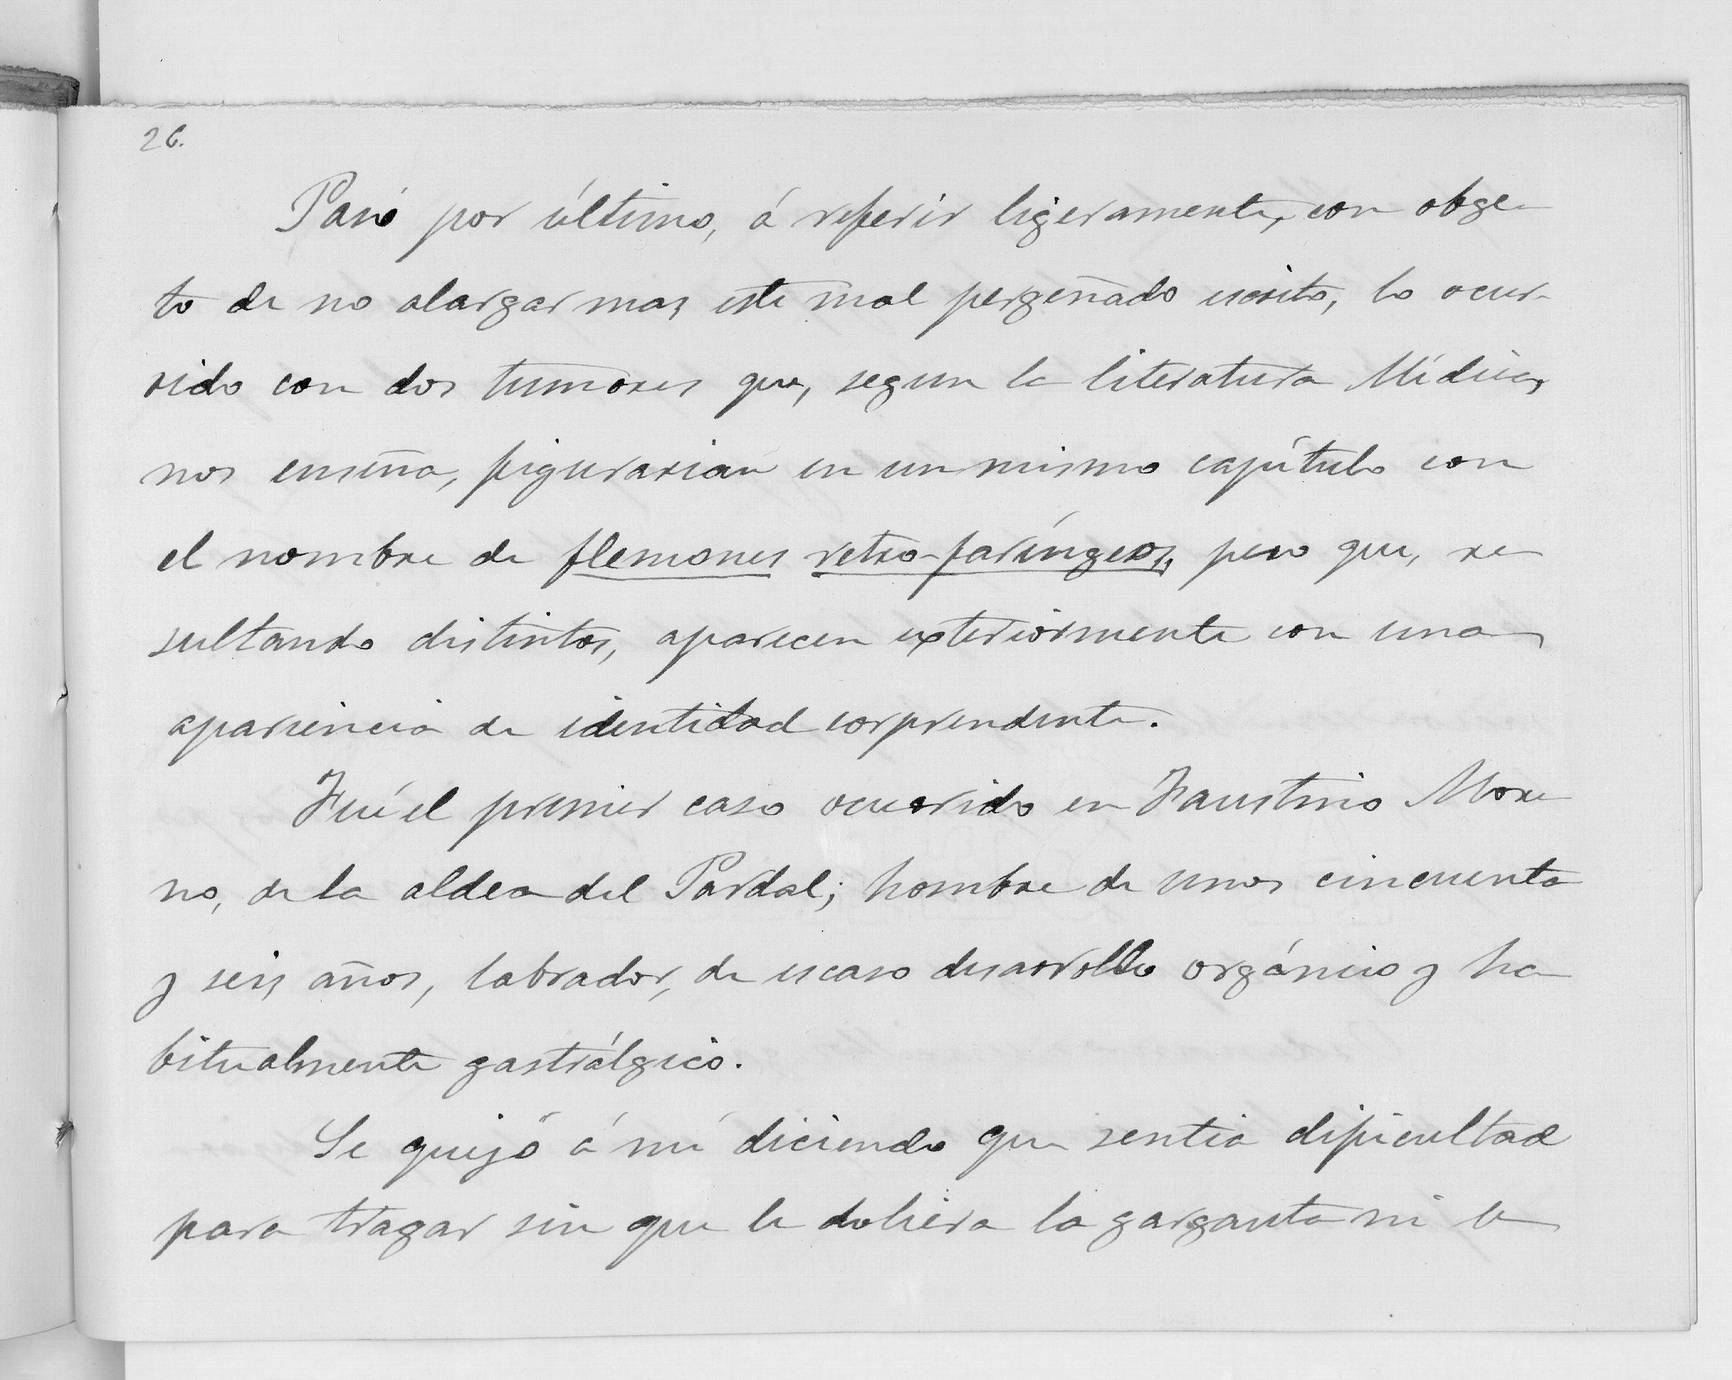 26.
Pasó por último, á referir ligeramente, con obge-
to de no alargar mas este mal pergeñado escrito, lo ocur-
rido con dos tumores que, segun la literatura Médica,
nos enseña, figurarian en un mismo capítulo con
el nombre de flemones retro-faríngeos, pero que, re-
sultando distintos, aparecen exteriormente con una
apariencia de identidad sorprendente.
Fué el primer caso ocurrido en Faustino More-
no, de la aldea del Pardal; hombre de unos cincuenta
y seis años, labrador, de escaso desarrollo orgánico y ha-
bitualmente gastrálgico.
Se quejó á mí diciendo que sentia dificultad
para tragar sin que le doliera la garganta ni le